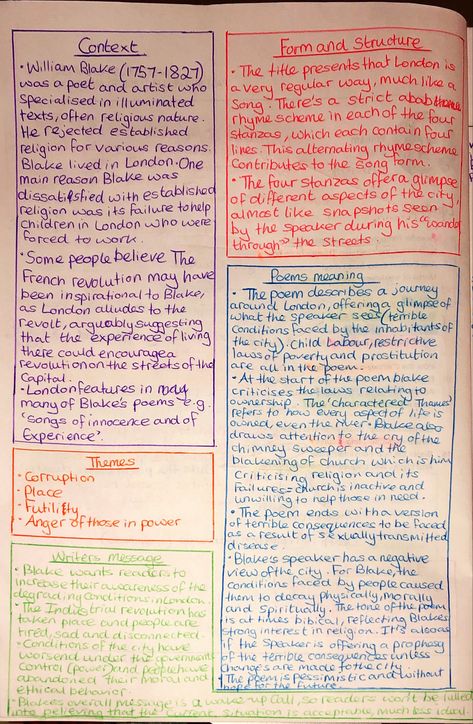 Context
• William Blake (1757-1827)
was a poet and artist who
specialised in illuminated
texts, often religious nature.
He rejected established
religion for various reasons.
Blake lived in London. One
main reason Blake was
dissatisfied with established
religion was its failure to help
children in London who were
forced to work.
• Some people believe The
French revolution may have
been inspirational to Blake,
as London alludes to the
revolt, arguably suggesting
that the experience of living
there could encourage a
revolution on the streets of the
Capital.
• London features in
many of Blake's poems e.g.
'songs of innocence and of
Experience'.
Themes
• Corruption
• Place
• Futility
• Anger of those in power
Writers Message
• Blake wants readers to
increase their awareness of the
degrading conditions in London.
• The Industrial revolution has
taken place and people are
tired, sad and disconnected.
• Conditions of the city have
worsend under the governments
control/power and people have
abandoned their moral and
ethical behavior.
• Blakes overall message is a wake-up call, so readers won't be lulled
into believing that the current situation is acceptable, much less ideal
Form and Structure
• The title presents that London is
a very regular way, much like a
song. There's a strict abab
rhyme scheme in each of the four
stanzas, which each contain four
lines. This alternating rhyme scheme
contributes to the song form.
• The four stanzas offer a glimpse
of different aspects of the city,
almost like snapshots seen
by the speaker during his "wander
through" the streets.
Poems meaning
• The poem describes a journey
around London, offering a glimpse of
what the speaker sees (terrible
conditions faced by the inhabitants of
the city). child Labour, restrictive
laws of poverty and prostitution
are all in the poem.
• At the start of the poem blake
criticises the laws relating to
ownership. The 'charactered Themes'
refers to how every aspect of life is
owned even the river. Blake also
draws attention to the cry of the
chimney sweeper and the
blakening of church which is him
Criticising religion and its
failures = church is inactive and
unwilling to help those in need.
• The poem ends with a version
of terrible consequences to be faced
as a result of sexually transmitted
disease.
• Blake's speaker has a negative
view of the city. For Blake, the
conditions faced by people caused
them to decay physically, morally
and spiritually. The tone of the poem
is at times biblical, reflecting Blakes
strong interest in religion. It's also as
if the speaker is offering a prophesy
of the terrible consequences unless
changes are made to the city.
• The poem is pessimistic and without
hope for the future.